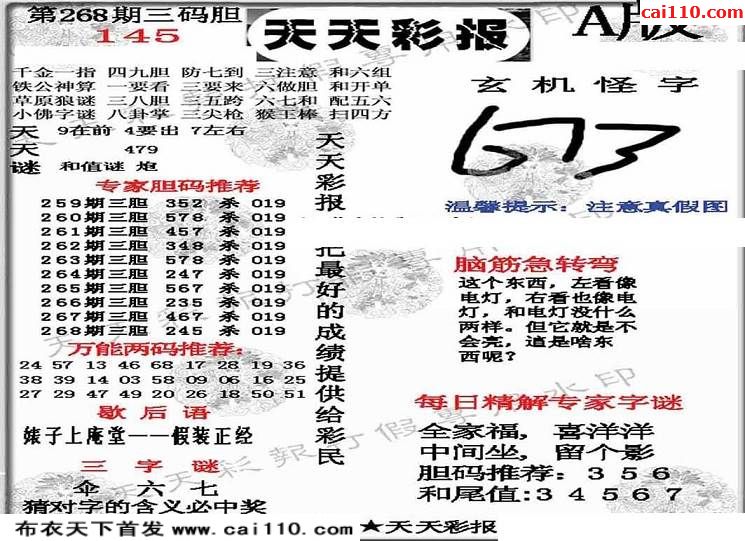 第268期三码胆
145
天天彩报
A版
cai110.com
千金一指 四九胆 防七到 三注意 和六组
铁公神算 一要看 三要来 六做胆 和开单
草原狼谜 三八胆 三五跨 六七和 配五六
小佛字谜 八卦掌 三尖枪 猴王棒 扫四方
天 9在前 4要出 7左右
天 479
谜 和值谜 炮
专家胆码推荐
259期三胆 352 杀 019
260期三胆 578 杀 019
261期三胆 457 杀 019
262期三胆 348 杀 019
263期三胆 578 杀 019
264期三胆 247 杀 019
265期三胆 567 杀 019
266期三胆 235 杀 019
267期三胆 467 杀 019
268期三胆 245 杀 019
万能两码推荐:
24 57 13 46 68 17 28 19 36
38 39 14 03 58 09 06 16 25
27 29 47 49 20 26 18 50 51
歇后语
婊子上庵堂——假装正经
三字谜
伞 六 七
猜对字的含义必中奖
天天彩报
把最好的成绩提供给彩民
玄机怪字
673
温馨提示: 注意真假图
脑筋急转弯
这个东西,左看像
电灯,右看也像电
灯,和电灯没什么
两样。但它就是不
会亮,這是啥东
西呢?
每日精解专家字谜
全家福,喜洋洋
中间坐,留个影
胆码推荐:3 5 6
和尾值:3 4 5 6 7
布衣天下首发 www.cai110.com ★天天彩报